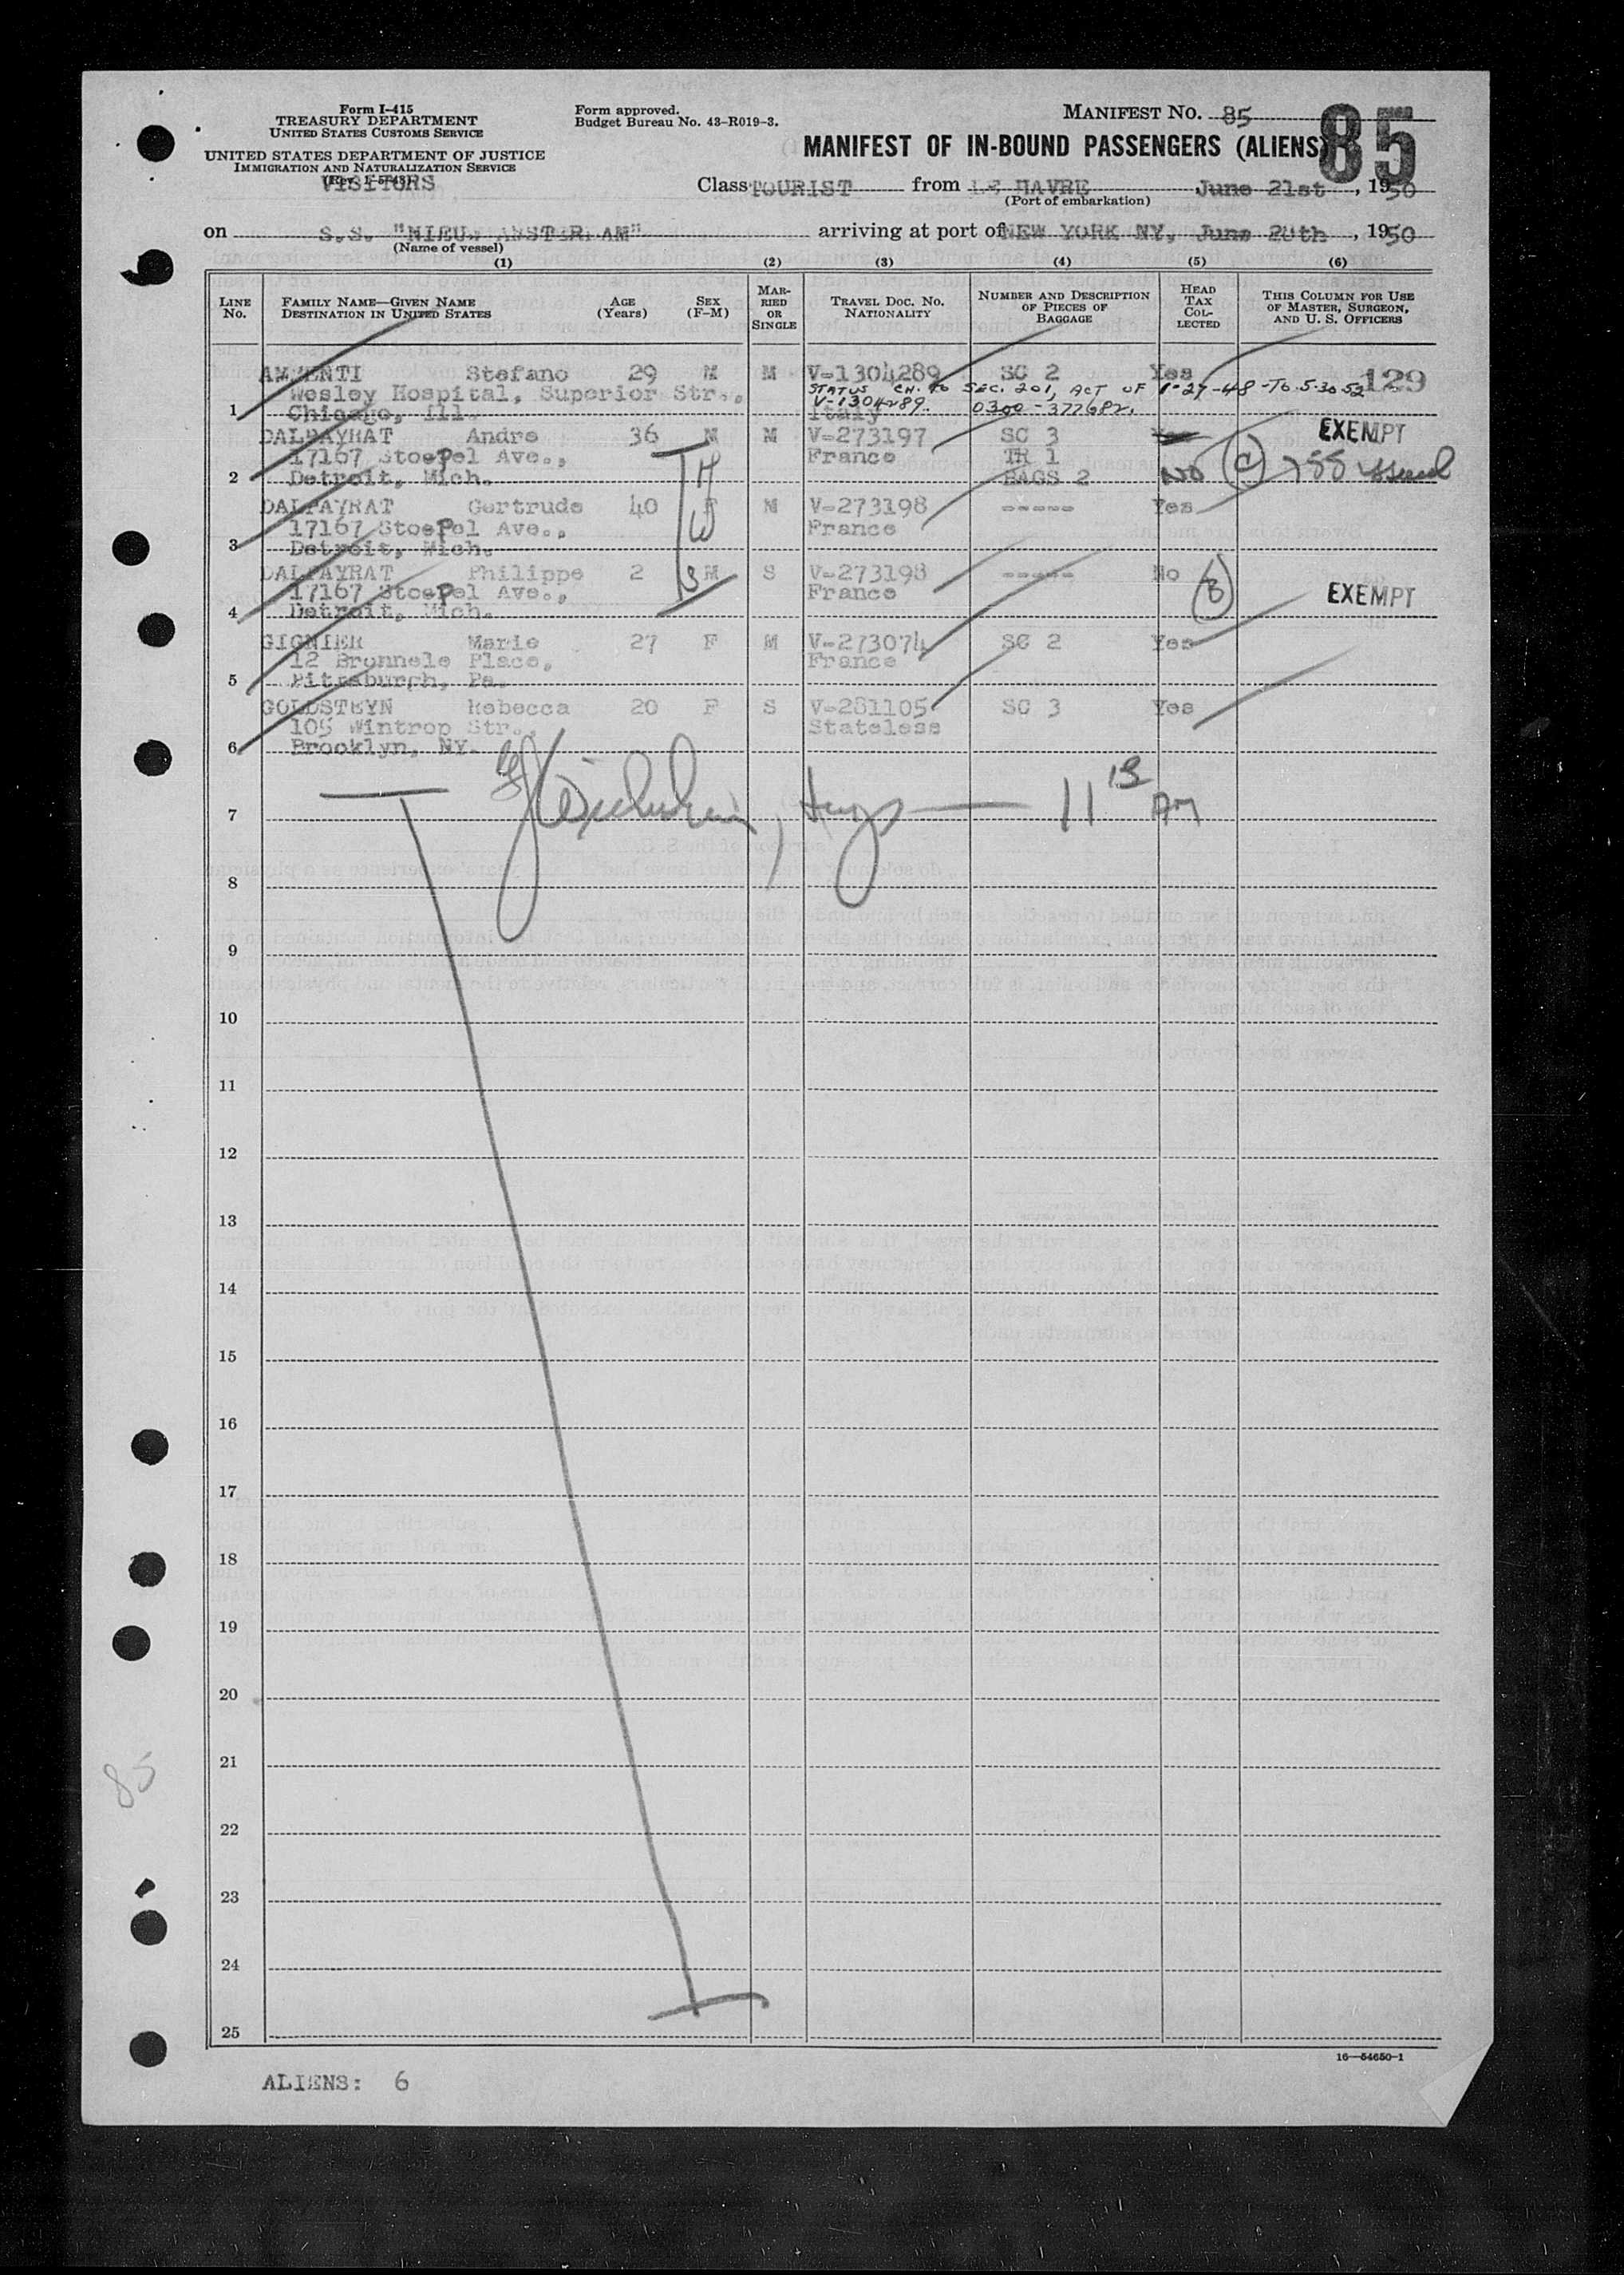 Form I-415
TREASURY DEPARTMENT
UNITED STATES CUSTOMS SERVICE
UNITED STATES DEPARTMENT OF JUSTICE
IMMIGRATION AND NATURALIZATION SERVICE
VISITORS
Form approved.
Budget Bureau No. 43-R019-3.
MANIFEST No. 85
85
MANIFEST OF IN-BOUND PASSENGERS (ALIENS)
Class TOURIST from LE HAVRE June 21st, 1950
(Port of embarkation)
on S.S. "NIEUW AMSTERDAM" arriving at port of NEW YORK NY, June 28th, 1950
(Name of vessel)
(1) (2) (3) (4) (5) (6)
LINE No. FAMILY NAME—GIVEN NAME DESTINATION IN UNITED STATES AGE (Years) SEX (F-M) MARRIED OR SINGLE TRAVEL DOC. NO. NATIONALITY NUMBER AND DESCRIPTION OF PIECES OF BAGGAGE HEAD TAX COLLECTED THIS COLUMN FOR USE OF MASTER, SURGEON, AND U. S. OFFICERS
Stefano 29 M M V-1304289 SC 2 Yes 129
Wesley Hospital, Superior Str., STATUS CH. to SEC. 201, ACT OF 1-27-48-TO 5-30-52
1 Chicago, Ill. V-1304289 Italy 0300-377682.
DALPAYRAT Andre 36 M M V-273197 SC 3 Yes EXEMPT
17167 Stoepel Ave., H France TR 1
2 Detroit, Mich. BAGS 2 NO C issued
DALPAYRAT Gertrude 40 F M V-273198 ----- Yes
17167 Stoepel Ave., W France
3 Detroit, Mich.
DALPAYRAT Philippe 2 M S V-273198 ----- No B EXEMPT
17167 Stoepel Ave., S France
4 Detroit, Mich.
GIGNIER Marie 27 F M V-273074 SC 2 Yes
12 Bronnele Place, France
5 Pittsburgh, Pa.
GOLDSTEYN Rebecca 20 F S V-281105 SC 3 Yes
105 Wintrop Str., Stateless
6 Brooklyn, NY.
7 11 AM
8
9
10
11
12
13
14
15
16
17
18
19
20
21
85
22
23
24
25
16—54650-1
ALIENS: 6